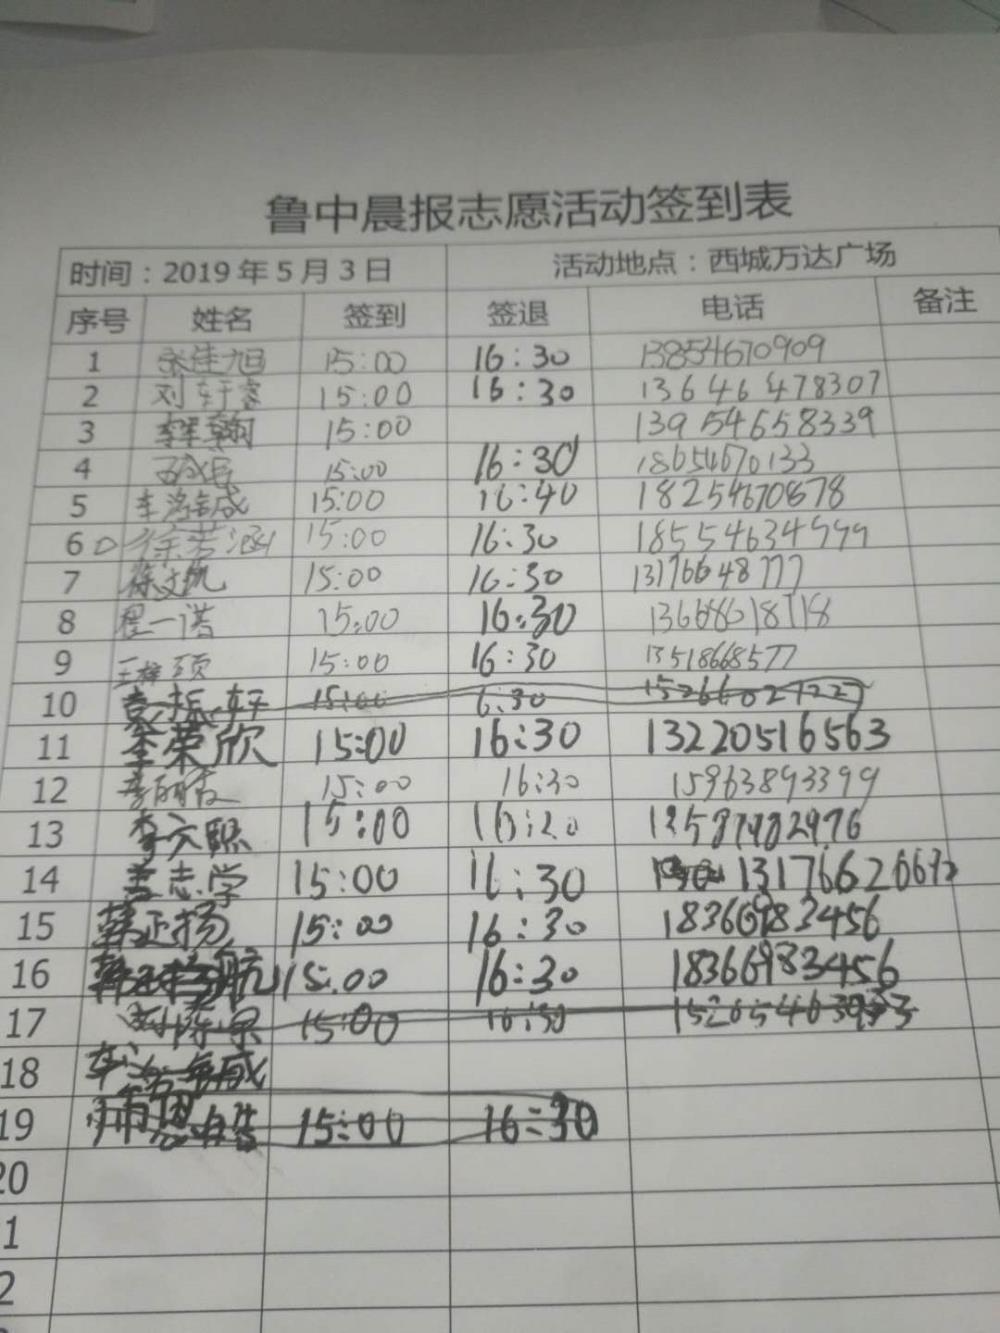 鲁中晨报志愿活动签到表
时间：2019年5月3日 活动地点：西城万达广场
序号 姓名 签到 签退 电话 备注
1 张佳旭 15:00 16:30 13854670909
2 刘轩睿 15:00 16:30 13646478307
3 15:00 13954658339
4 15:00 16:30 18654670133
5 车浩铭威 15:00 16:40 18254670878
6 徐艺涵 15:00 16:30 18554634999
7 徐文凯 15:00 16:30 13176648777
8 程一诺 15:00 16:30 13668618718
9 王梓硕 15:00 16:30 13518668577
10 袁振轩 15:00 6:30
11 李荣欣 15:00 16:30 13220516563
12 李丽霞 15:00 16:30 15963893399
13 15:00
14 孟志学 15:00 16:30 13176620692
15 韩正扬 15:00 16:30 18366983456
16 航 15:00 16:30 18366983456
17 15:00 16:30
18
19 15:00 16:30
20
1
2